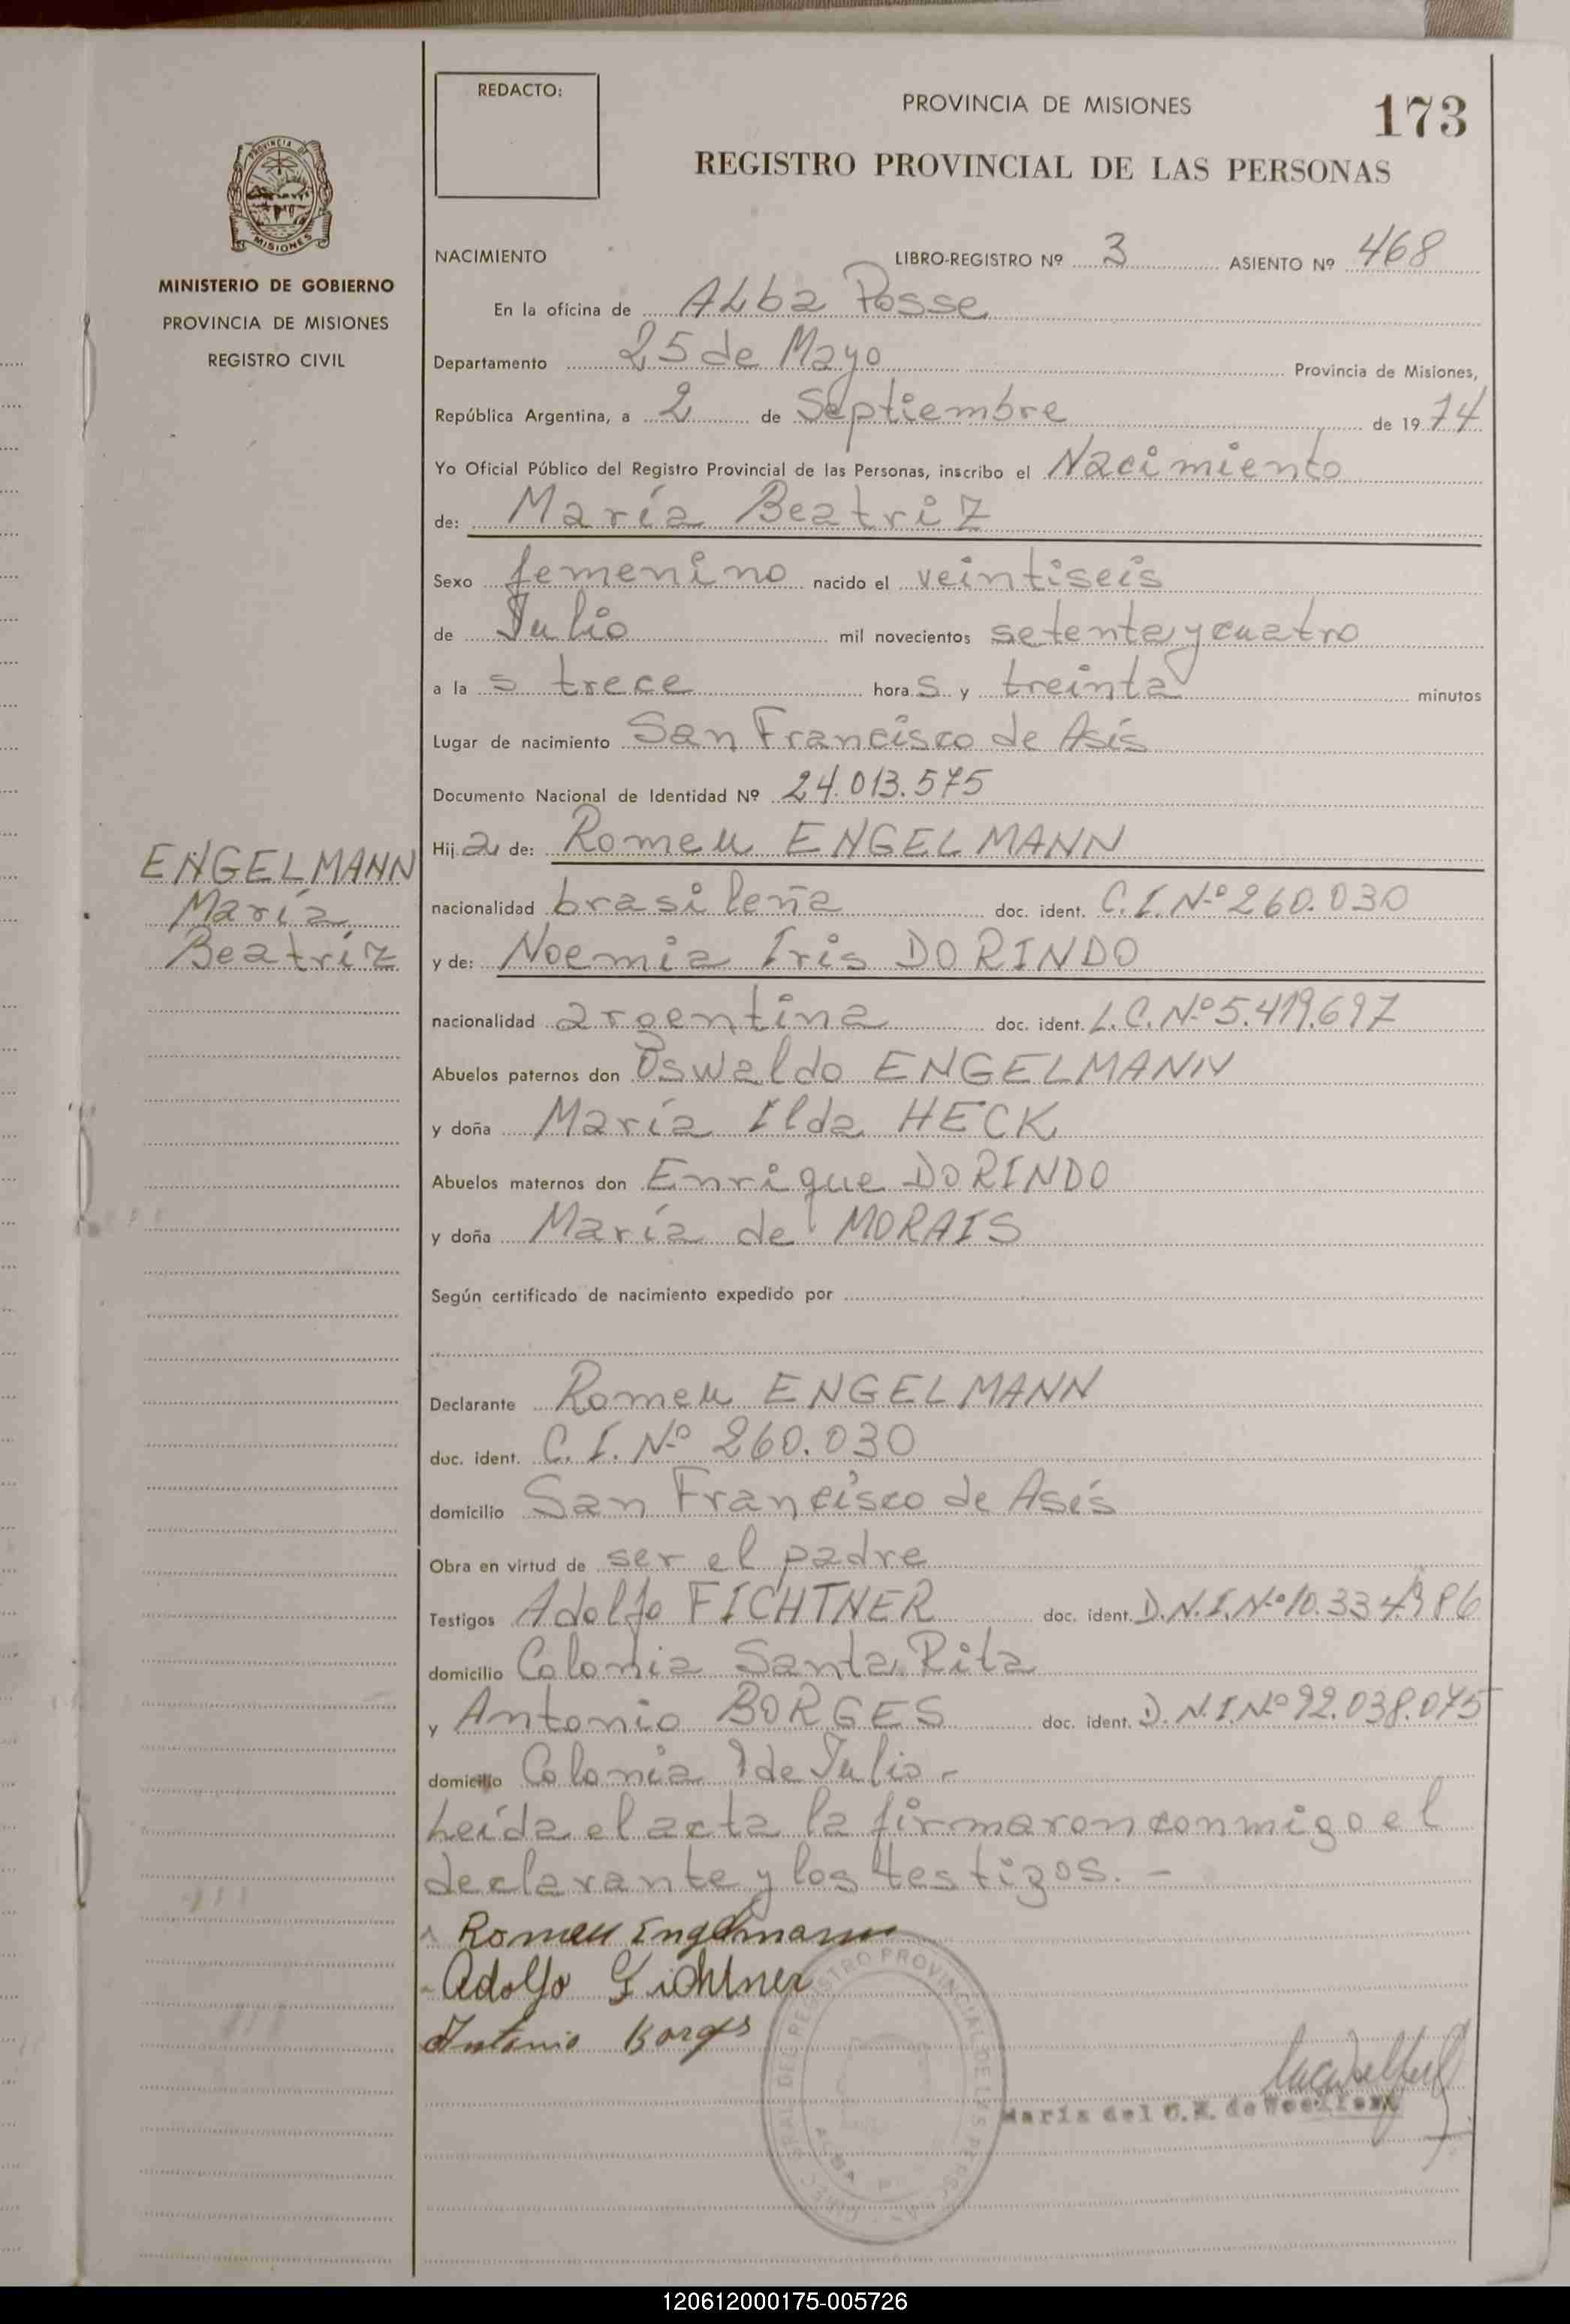 REDACTO:
PROVINCIA DE MISIONES
173
REGISTRO PROVINCIAL DE LAS PERSONAS
PROVINCIA DE
MISIONES
MINISTERIO DE GOBIERNO
PROVINCIA DE MISIONES
REGISTRO CIVIL
NACIMIENTO LIBRO-REGISTRO Nº 3 ASIENTO Nº 468
En la oficina de ALba Posse
Departamento 25 de Mayo Provincia de Misiones,
República Argentina, a 2 de Septiembre de 1974
Yo Oficial Público del Registro Provincial de las Personas, inscribo el Nacimiento
de: María Beatriz
Sexo femenino nacido el veintiseis
de Julio mil novecientos setenta y cuatro
a la s trece hora s y treinta minutos
Lugar de nacimiento San Francisco de Asís
Documento Nacional de Identidad Nº 24.013.575
Hija de: Romeu ENGELMANN
ENGELMANN
María
Beatríz
nacionalidad brasileña doc. ident. C.I.Nº 260.030
y de: Noemia Iris DORINDO
nacionalidad argentina doc. ident. L.C.Nº 5.419.697
Abuelos paternos don Oswaldo ENGELMANN
y doña María Ilda HECK
Abuelos maternos don Enrique DORINDO
y doña María de MORAIS
Según certificado de nacimiento expedido por
Declarante Romeu ENGELMANN
doc. ident. C.I. Nº 260.030
domicilio San Francisco de Asís
Obra en virtud de ser el padre
Testigos Adolfo FICHTNER doc. ident. D.N.I.Nº
domicilio Colonia Santa Rita
y Antonio BORGES doc. ident. D.N.I.Nº 92.038.075
domicilio Colonia 9 de Julio.-
Leída el acta la firmaron conmigo el
declarante y los testigos.-
Romeu Engelmann
Adolfo Fichtner
Antonio Borges
REGISTRO PROVINCIAL DE LAS PERSONAS
María del C.
120612000175-005726